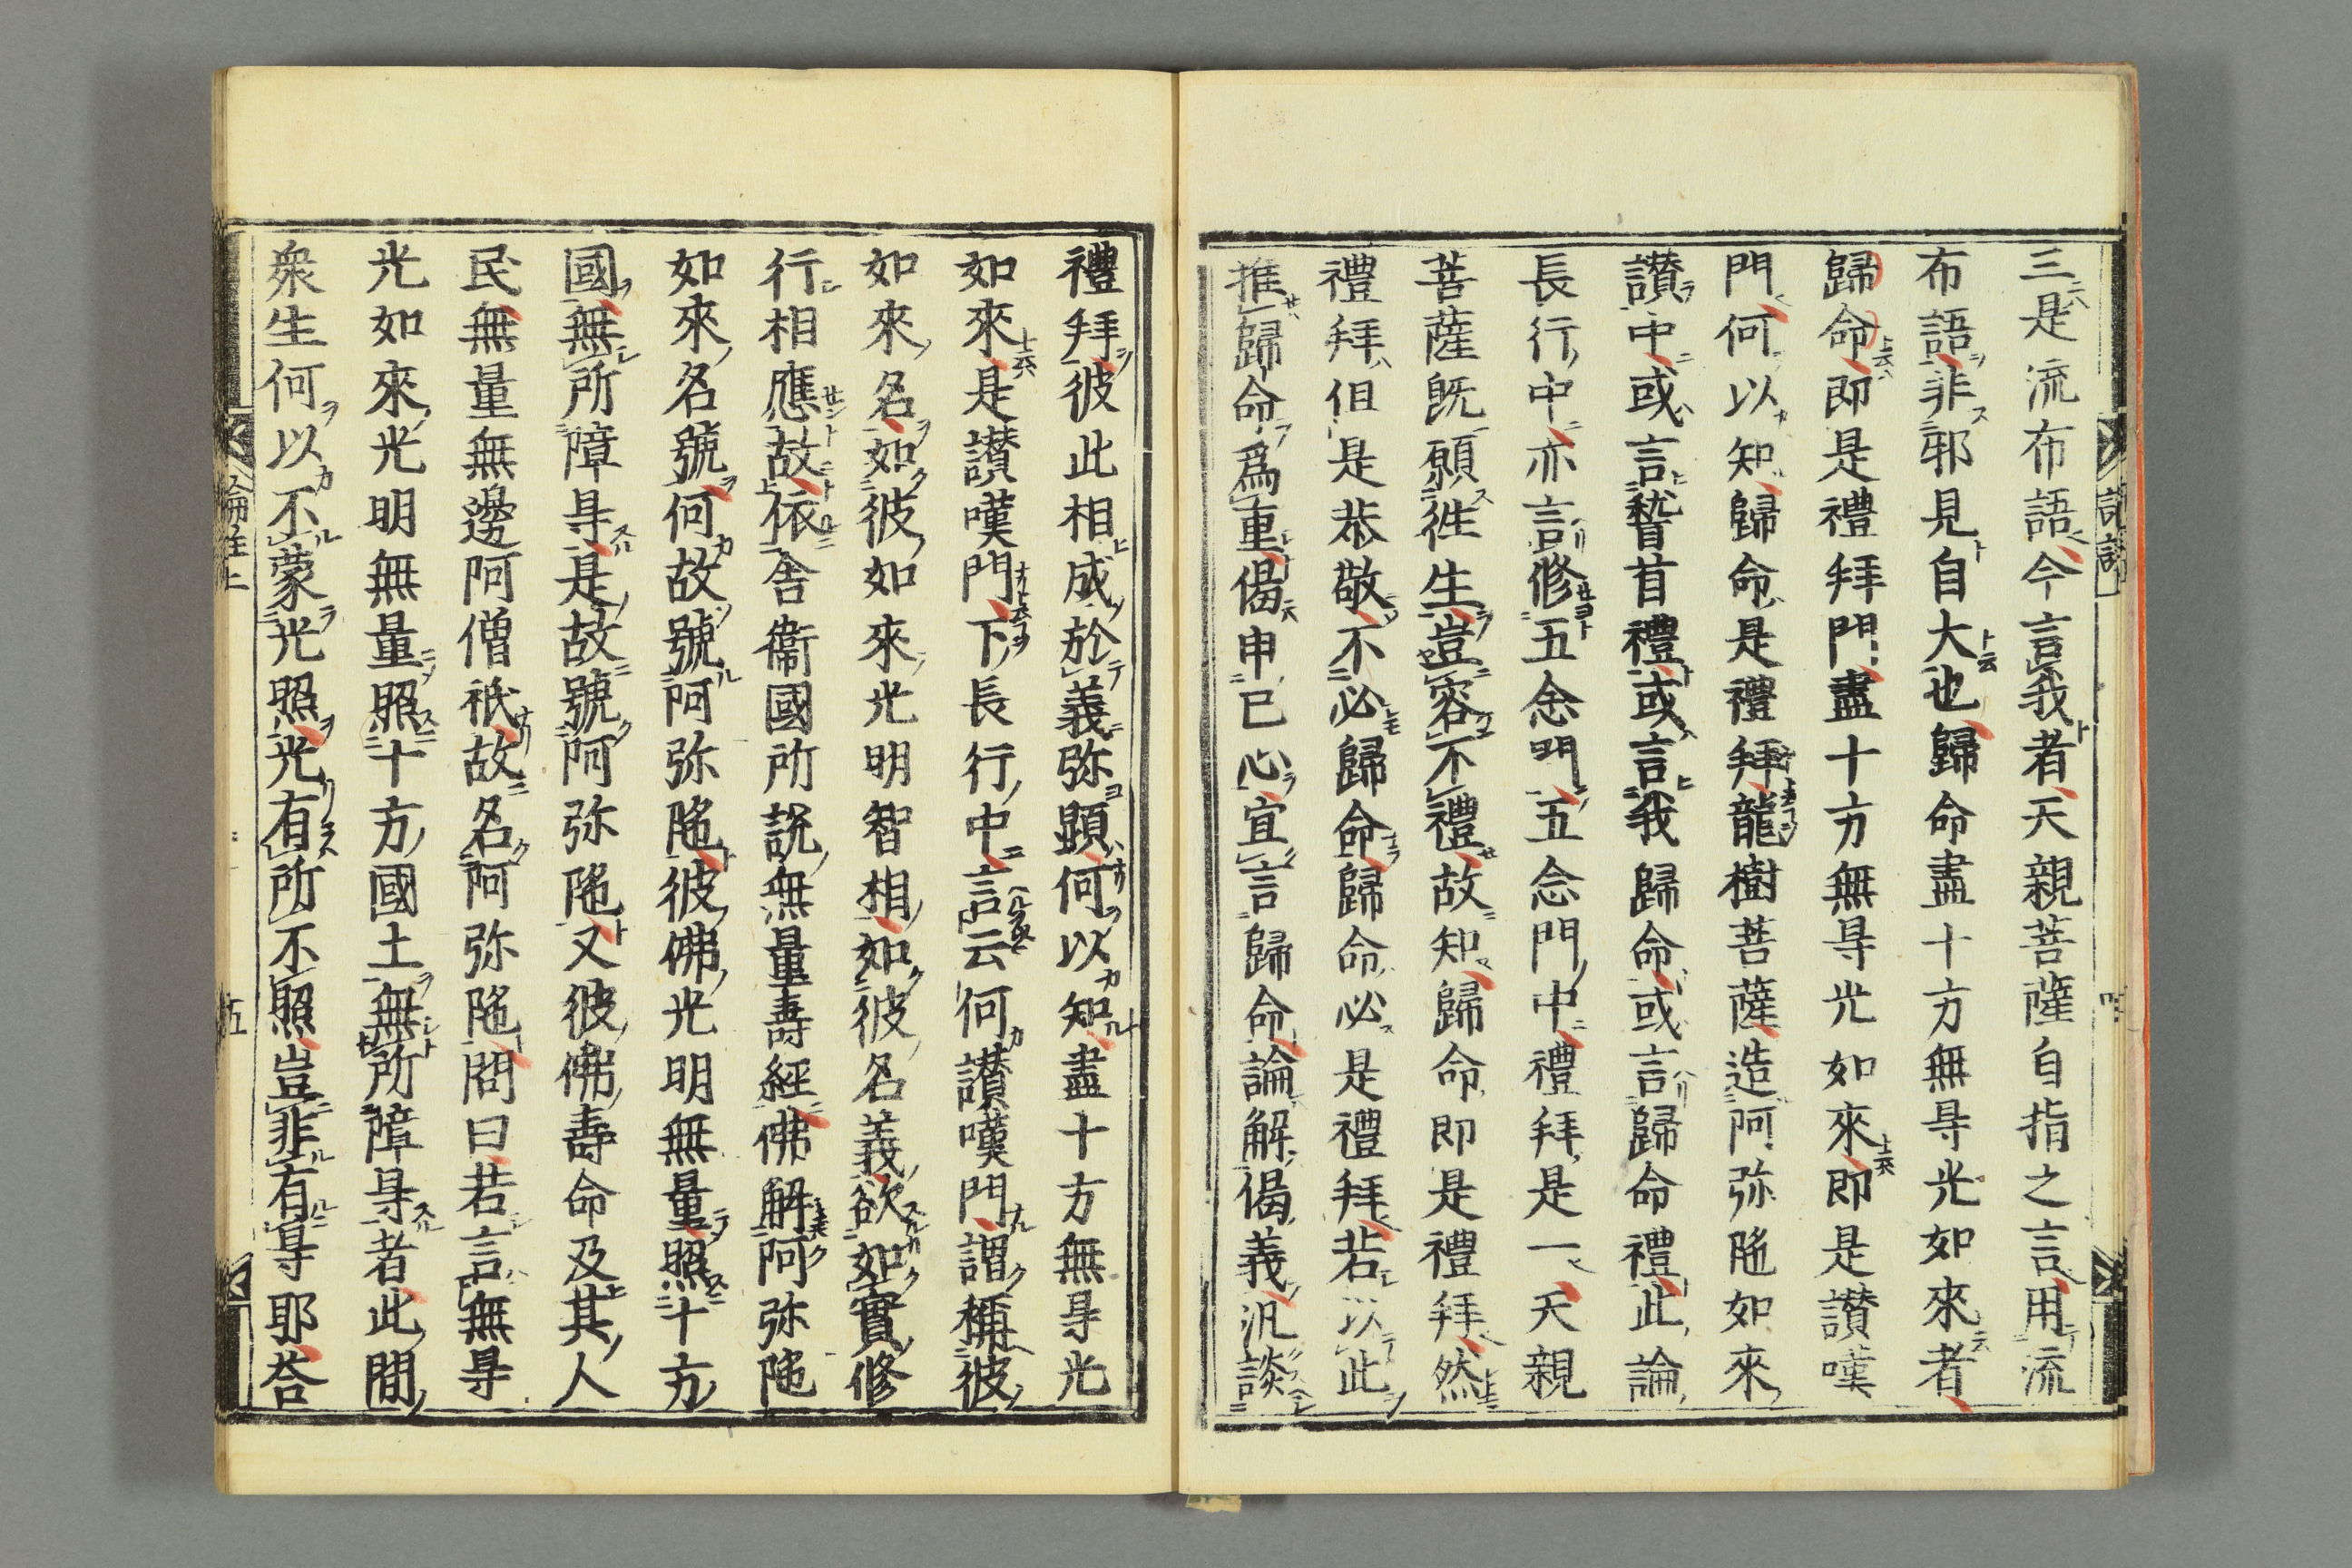 三是流布語今言我者天親菩薩自指之言用流
布語非邪見自大也歸命盡十方無㝵光如來者
歸命即是禮拜門盡十方無㝵光如來即是讃嘆
門何以知歸命是禮拜龍樹菩薩造阿弥陁如來
讃中或言稽首禮或言我歸命或言歸命禮此論
長行中亦言修五念門五念門中禮拜是一天親
菩薩既願徃生豈容不禮故知歸命即是禮拜然
禮拜但是恭敬不必歸命歸命必是禮拜若以此
推歸命爲重偈申已心宜言歸命論解偈義汎談
禮拜彼此相成於義弥顯何以知盡十方無㝵光
如來是讃嘆門下長行中言云何讃嘆門謂稱彼
如來名如彼如來光明智相如彼名義欲如實修
行相應故依舎衞國所說無量壽經佛解阿弥陁
如來名號何故號阿弥陁彼佛光明無量照十方
國無所障㝵是故號阿弥陁又彼佛壽命及其人
民無量無邊阿僧祇故名阿弥陁問曰若言無㝵
光如來光明無量照十方國土無所障㝵者此間
衆生何以不蒙光照光有所不照豈非有㝵耶荅
論註上
五